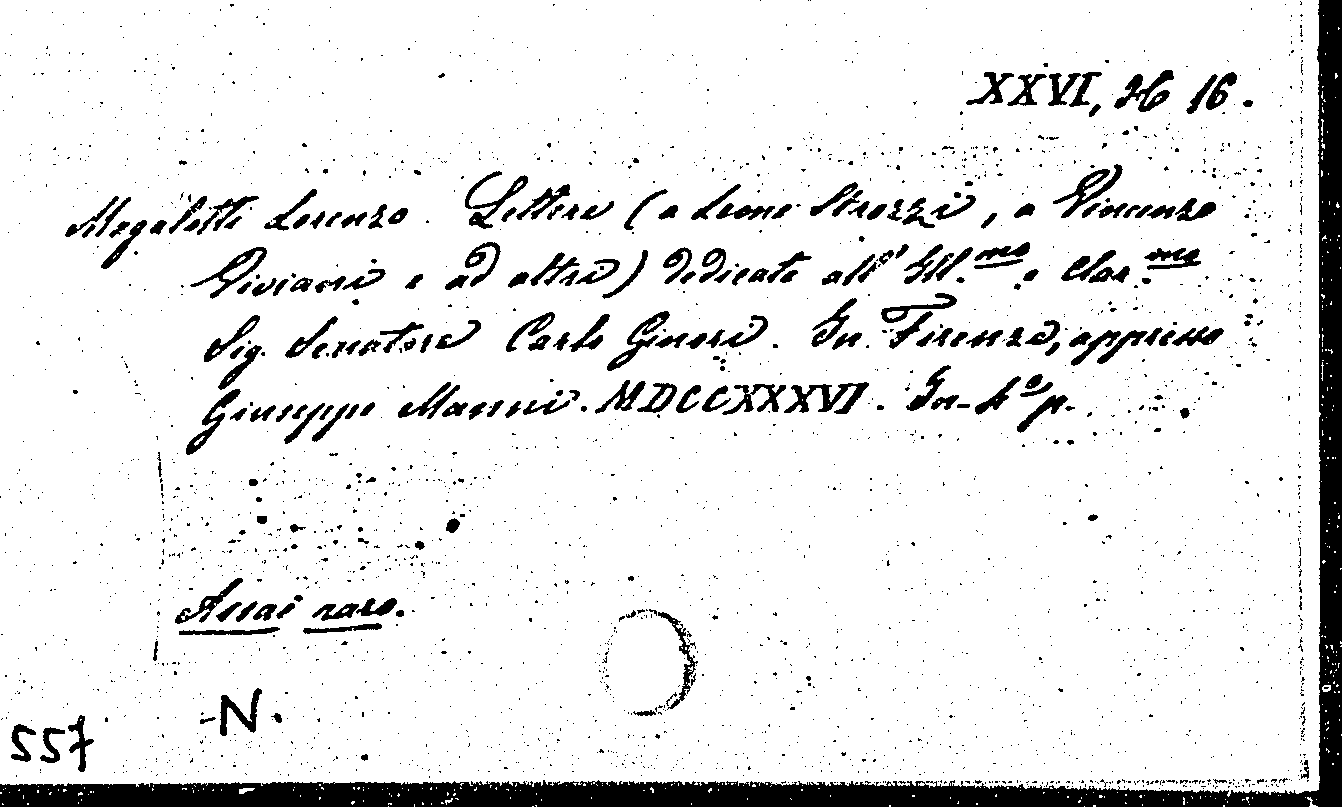 XXVI, H 16.
Magalotti Lorenzo. Lettere (a Leone Strozzi, a Vincenzo
Viviani e ad altri) dedicate all' Ill.mo e Clar.mo
Sig. Senatore Carlo Ginori. In Firenze, appresso
Giuseppe Manni. MDCCXXXVI. In-4° p.
Assai raro.
N.
557